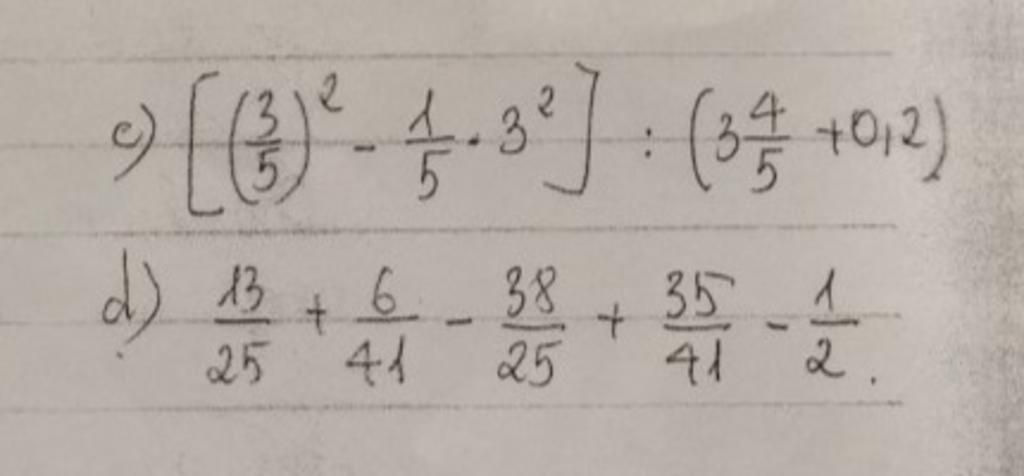 c) [(3/5)² - 1/5 . 3²] : (3 4/5 + 0,2)
d) 13/25 + 6/41 - 38/25 + 35/41 - 1/2.